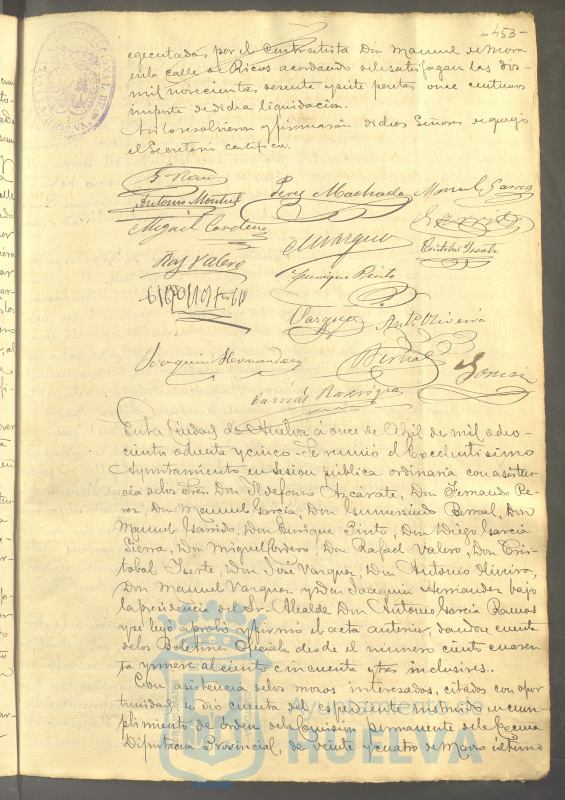 -453-
ejecutadas por el contratista Don Manuel de Mora
en la calle de Ricos acordando se le satisfagan las dos
mil novecientas sesenta y siete pesetas once centimos
importe de dicha liquidacion.
Asi lo resolvieron y firmaran dichos Señores de que yo
el Secretario certifico.
Antonio Montiel
Perez Machado
Manuel Garcia
Miguel Cordero
M Vazquez
Cristobal Yserte
Raf Valero
Enrique Pinto
Vazquez
Antº Oliveira
Joaquin Hernandez
Bernal
En la Ciudad de Huelva á once de Abril de mil ocho-
cientos ochenta y cinco. Se reunió el Excelentisimo
Ayuntamiento en sesion publica ordinaria con asisten-
cia de los Sres. Don Ildefonso Azcarate, Don Fernando Pe-
rez, Don Manuel Garcia, Don Gumersindo Bernal, Don
Manuel Garrido, Don Enrique Pinto, Don Diego Garcia
Sierra, Don Miguel Cordero, Don Rafael Valero, Don Cris-
tobal Yserte, Don José Vazquez, Don Antonio Oliveira,
Don Manuel Vazquez y Don Joaquin Hernandez bajo
la presidencia del Sr. Alcalde Don Antonio Garcia Ramos
y se leyó aprobó y firmó el acta anterior, dandose cuenta
de los Boletines Oficiales desde el numero ciento cuaren-
ta y nueve al ciento cincuenta y tres inclusives.
Con asistencia de los mozos interesados, citados con opor-
tunidad, se dio cuenta del expediente instruido en cum-
plimiento de orden de la Comision permanente de la Excma
Diputacion Provincial, de veinte y cuatro de Marzo ultimo
Ayuntamiento de
HUELVA